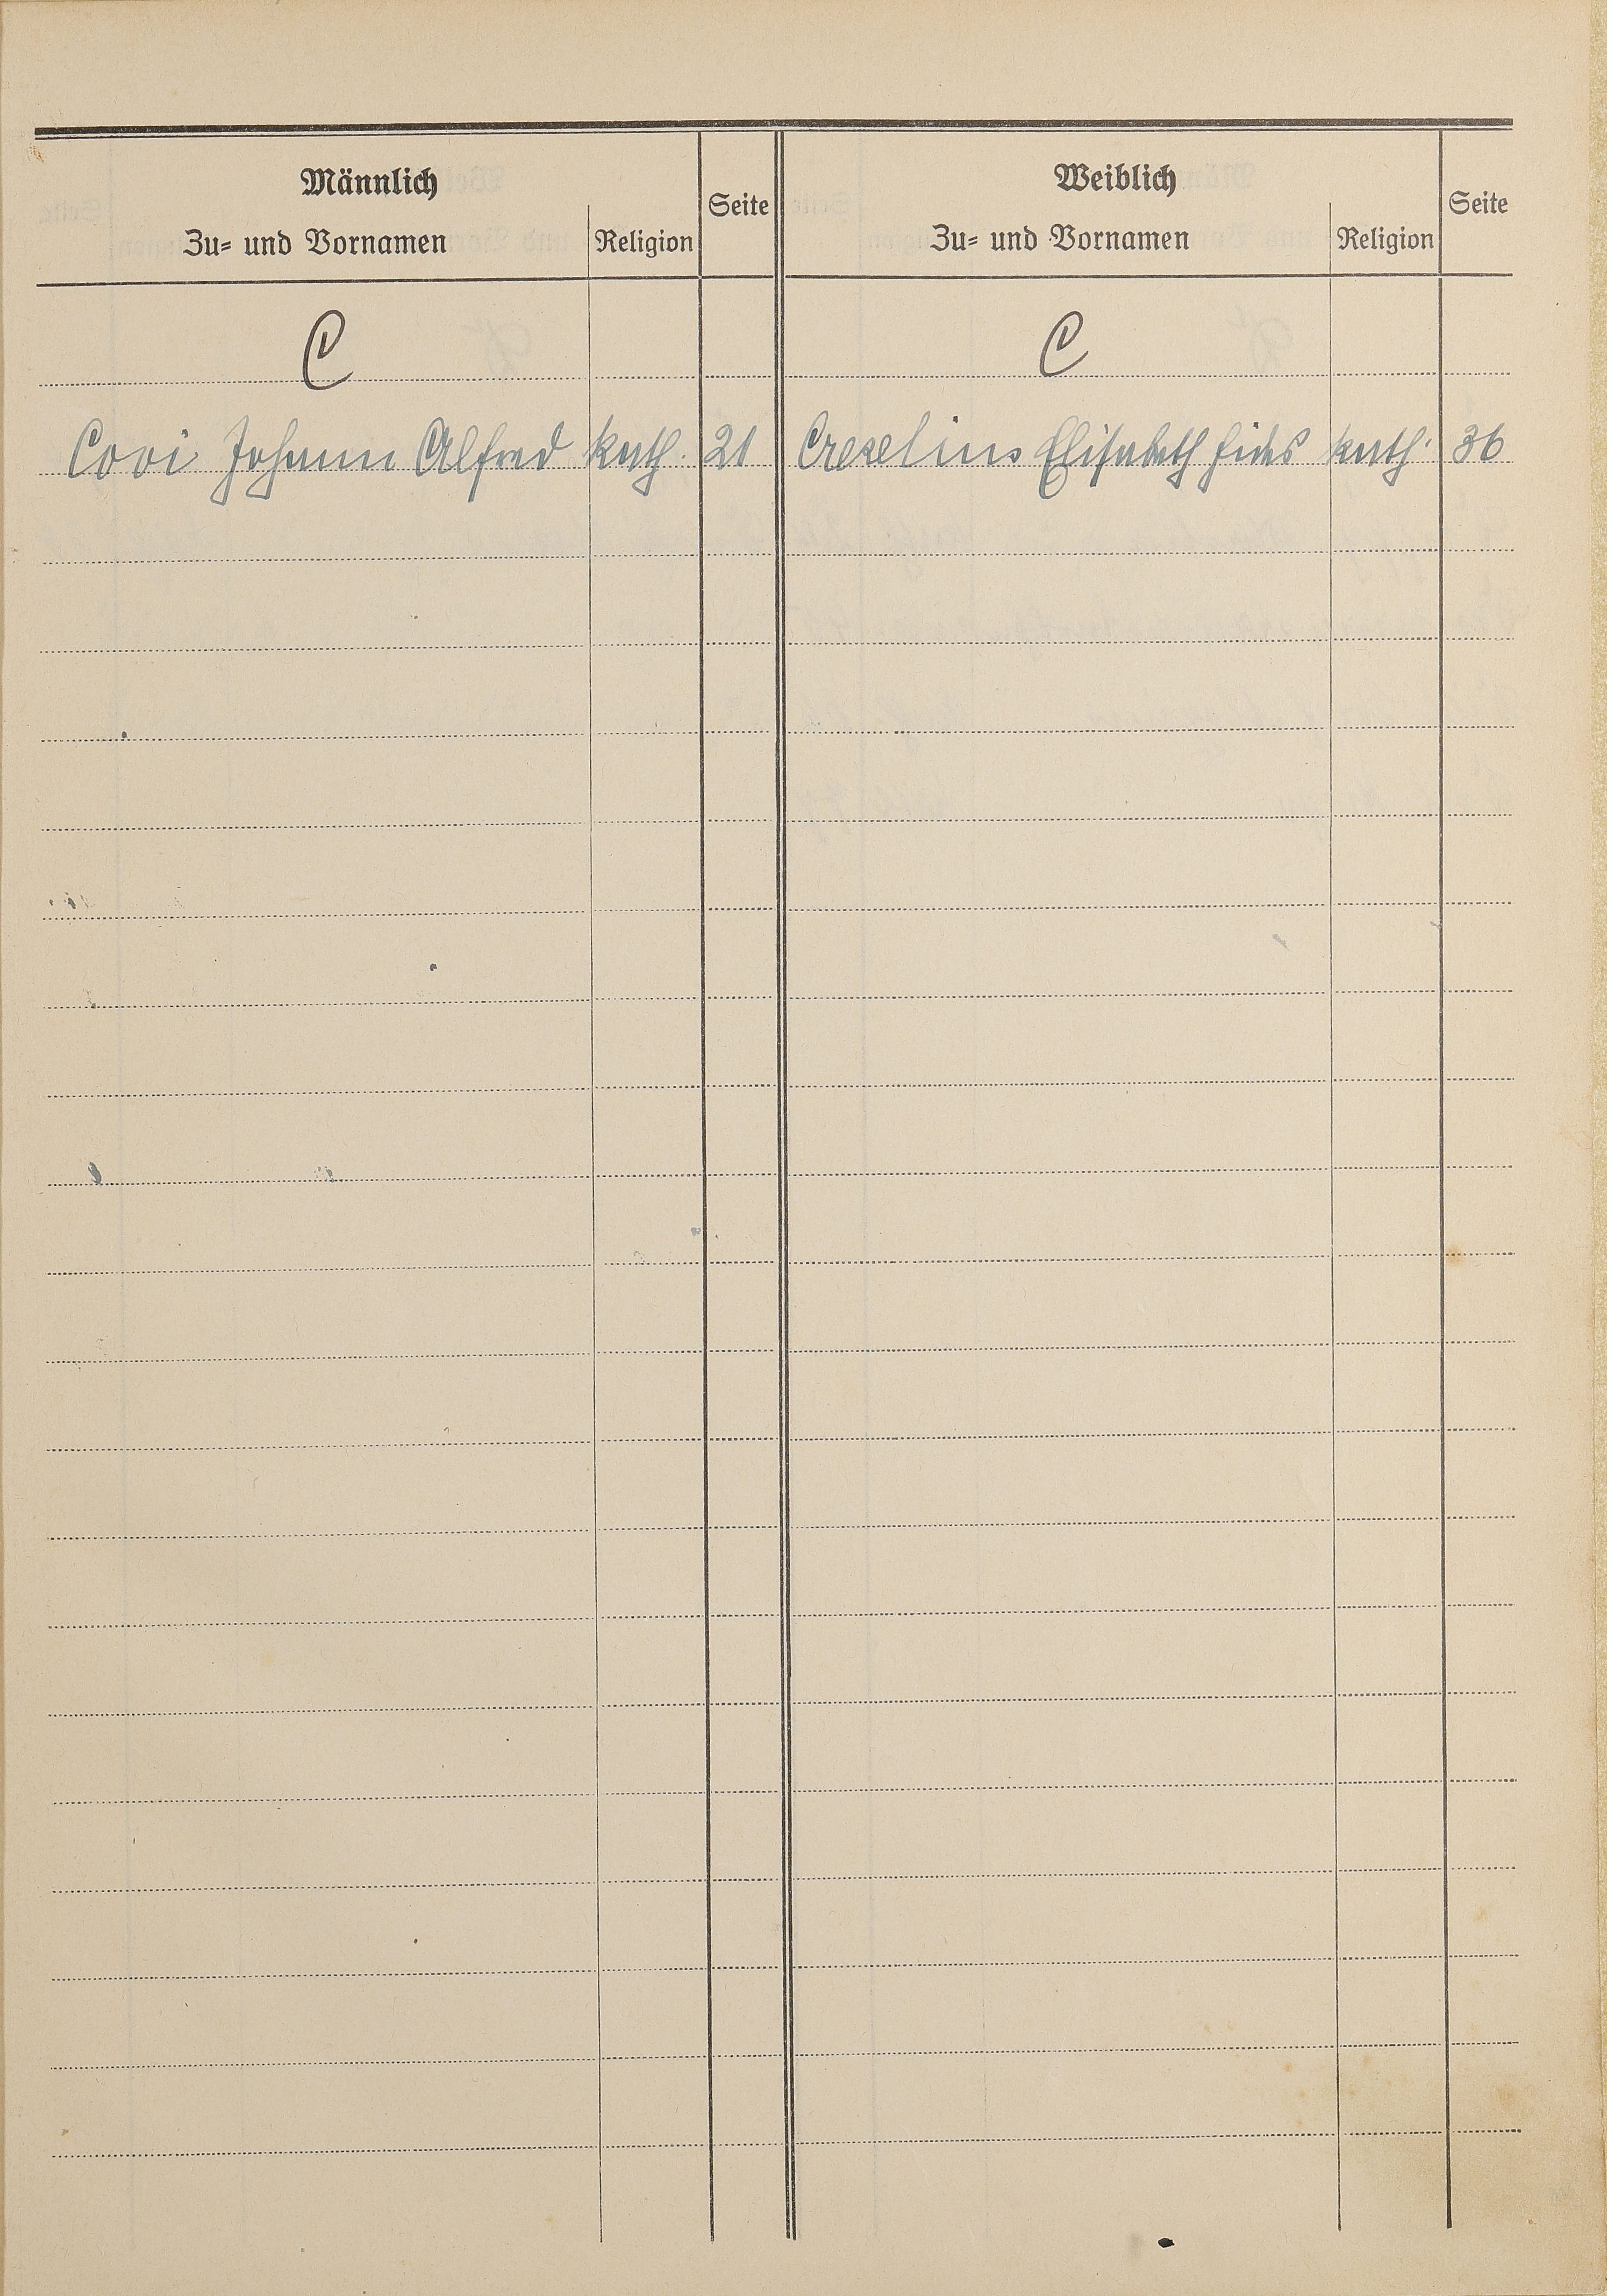 Männlich
Zu= und Vornamen
Religion
Seite
C
Covi Johann Alfred kath. 21
Weiblich
Zu= und Vornamen
Religion
Seite
C
Creselius Elisabeth Fides kath. 36